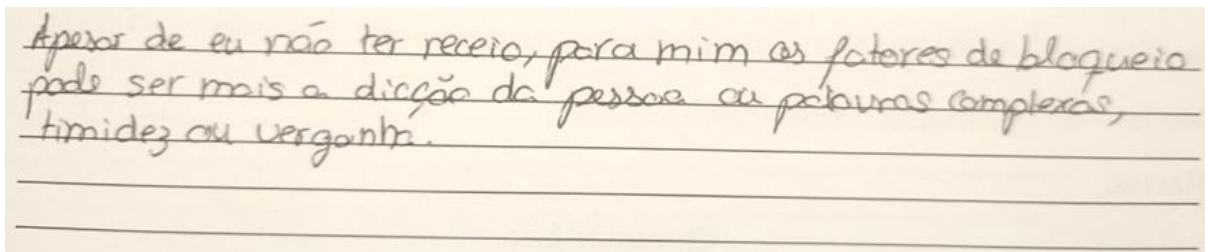 Apesar de eu não ter receio, para mim os fatores de bloqueio
pode ser mais a dicção da pessoa ou palavras complexas,
timidez ou vergonha.